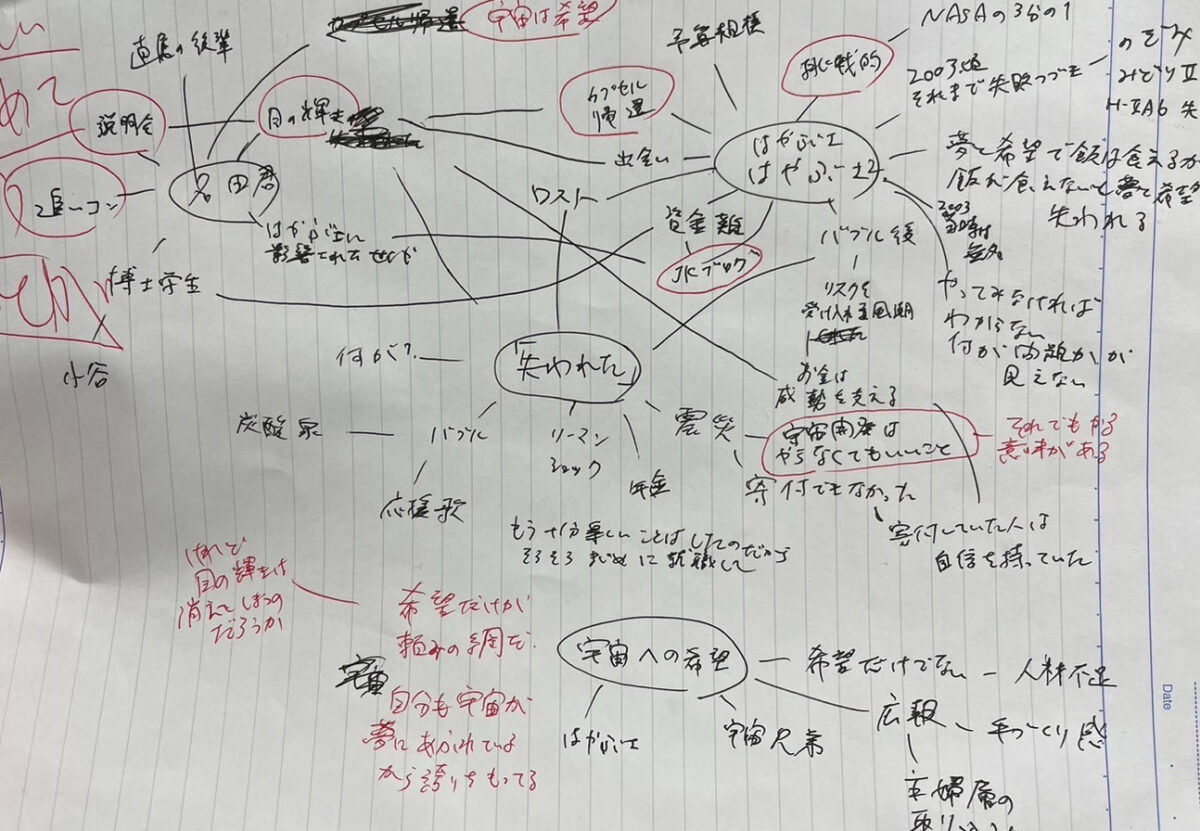 宇宙は希望
NASAの3分の1
直属の後輩
予算規模
挑戦的
2003頃
それまで失敗つづき
のぞみ
みどりII
H-IIA6 失
説明会
目の輝き
カプセル
帰還
出会い
はやぶさ
はやぶさ2
夢と希望で飯は食えるか
飯が食えないと夢と希望
失われる
追いコン
君
ロスト
資金難
バブル後
2003
当時は
無名
はやぶさに
影響された世代
JKブログ
博士学生
リスクを
受け入れる風潮
やってみなければ
わからない
何が問題かが
見えない
小谷
何が?
「失われた」
お金は
威勢を支える
炭酸泉
バブル
リーマン
ショック
震災
宇宙開発は
やらなくてもいいこと
それでもやる
意味がある
応援歌
年金
寄付でもなかった
もう十分楽しいことはしたのだから
そろそろまじめに就職して
寄付していた人は
自信を持っていた
けれど
目の輝きは
消えてしまうの
だろうか
希望だけが
頼みの綱だ
宇宙への希望
希望だけでない
人材不足
宇宙
自分も宇宙が
夢にあふれている
から誇りをもってる
はやぶさ
宇宙兄弟
広報
手づくり感
主婦層の
Date